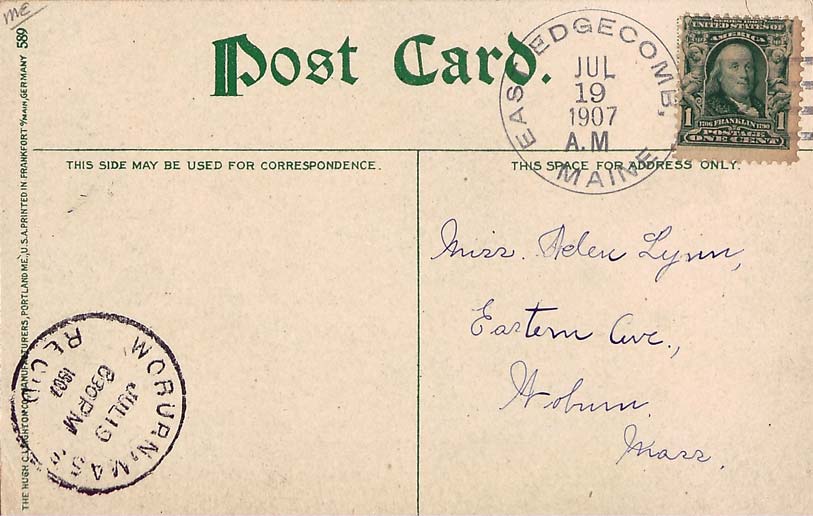 ME
Post Card.
EAST EDGECOMB,
JUL
19
1907
A.M
MAINE
UNITED STATES OF
AMERICA
1 1706 FRANKLIN 1790 1
POSTAGE
ONE CENT
THIS SIDE MAY BE USED FOR CORRESPONDENCE.
THIS SPACE FOR ADDRESS ONLY.
Miss. Helen Lynn,
Eastern Ave.,
Woburn.
Mass.
WOBURN, MASS
JUL 19
630 PM
1907
REC'D
THE HUGH C. LEIGHTON CO., MANUFACTURERS, PORTLAND, ME., U.S.A. PRINTED IN FRANKFORT o/MAIN, GERMANY 589